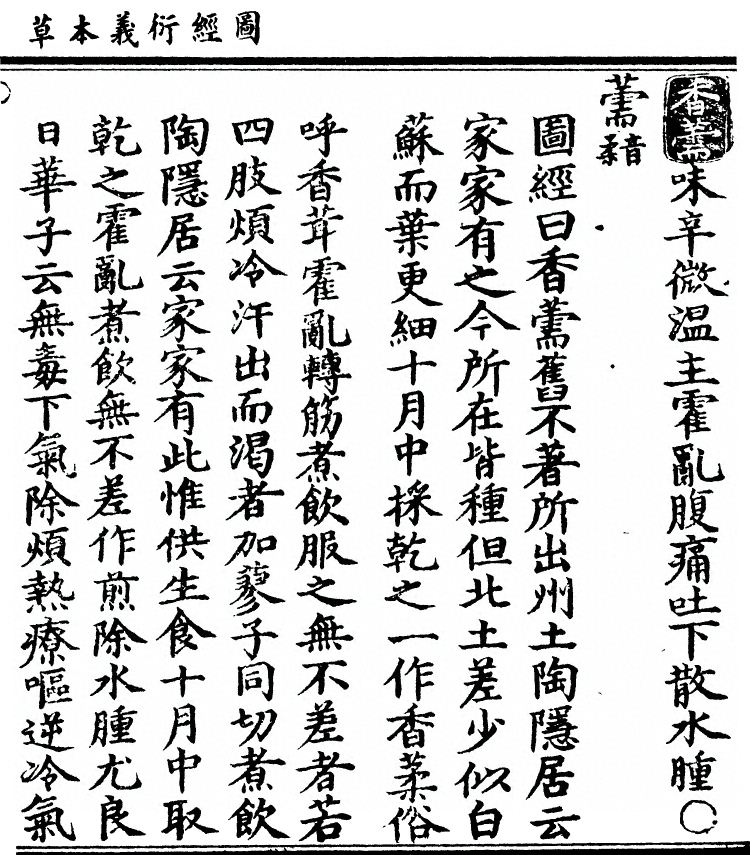 圖經衍義本草
香薷味辛微溫主霍亂腹痛吐下散水腫○
薷音柔
圖經曰香薷舊不著所出州土陶隱居云
家家有之今所在皆種但北土差少似白
蘇而葉更細十月中採乾之一作香葇俗
呼香茸霍亂轉筋煮飲服之無不差者若
四肢煩冷汗出而渴者加蓼子同切煮飲
陶隱居云家家有此惟供生食十月中取
乾之霍亂煮飲無不差作煎除水腫尤良
日華子云無毒下氣除煩熱療嘔逆冷氣